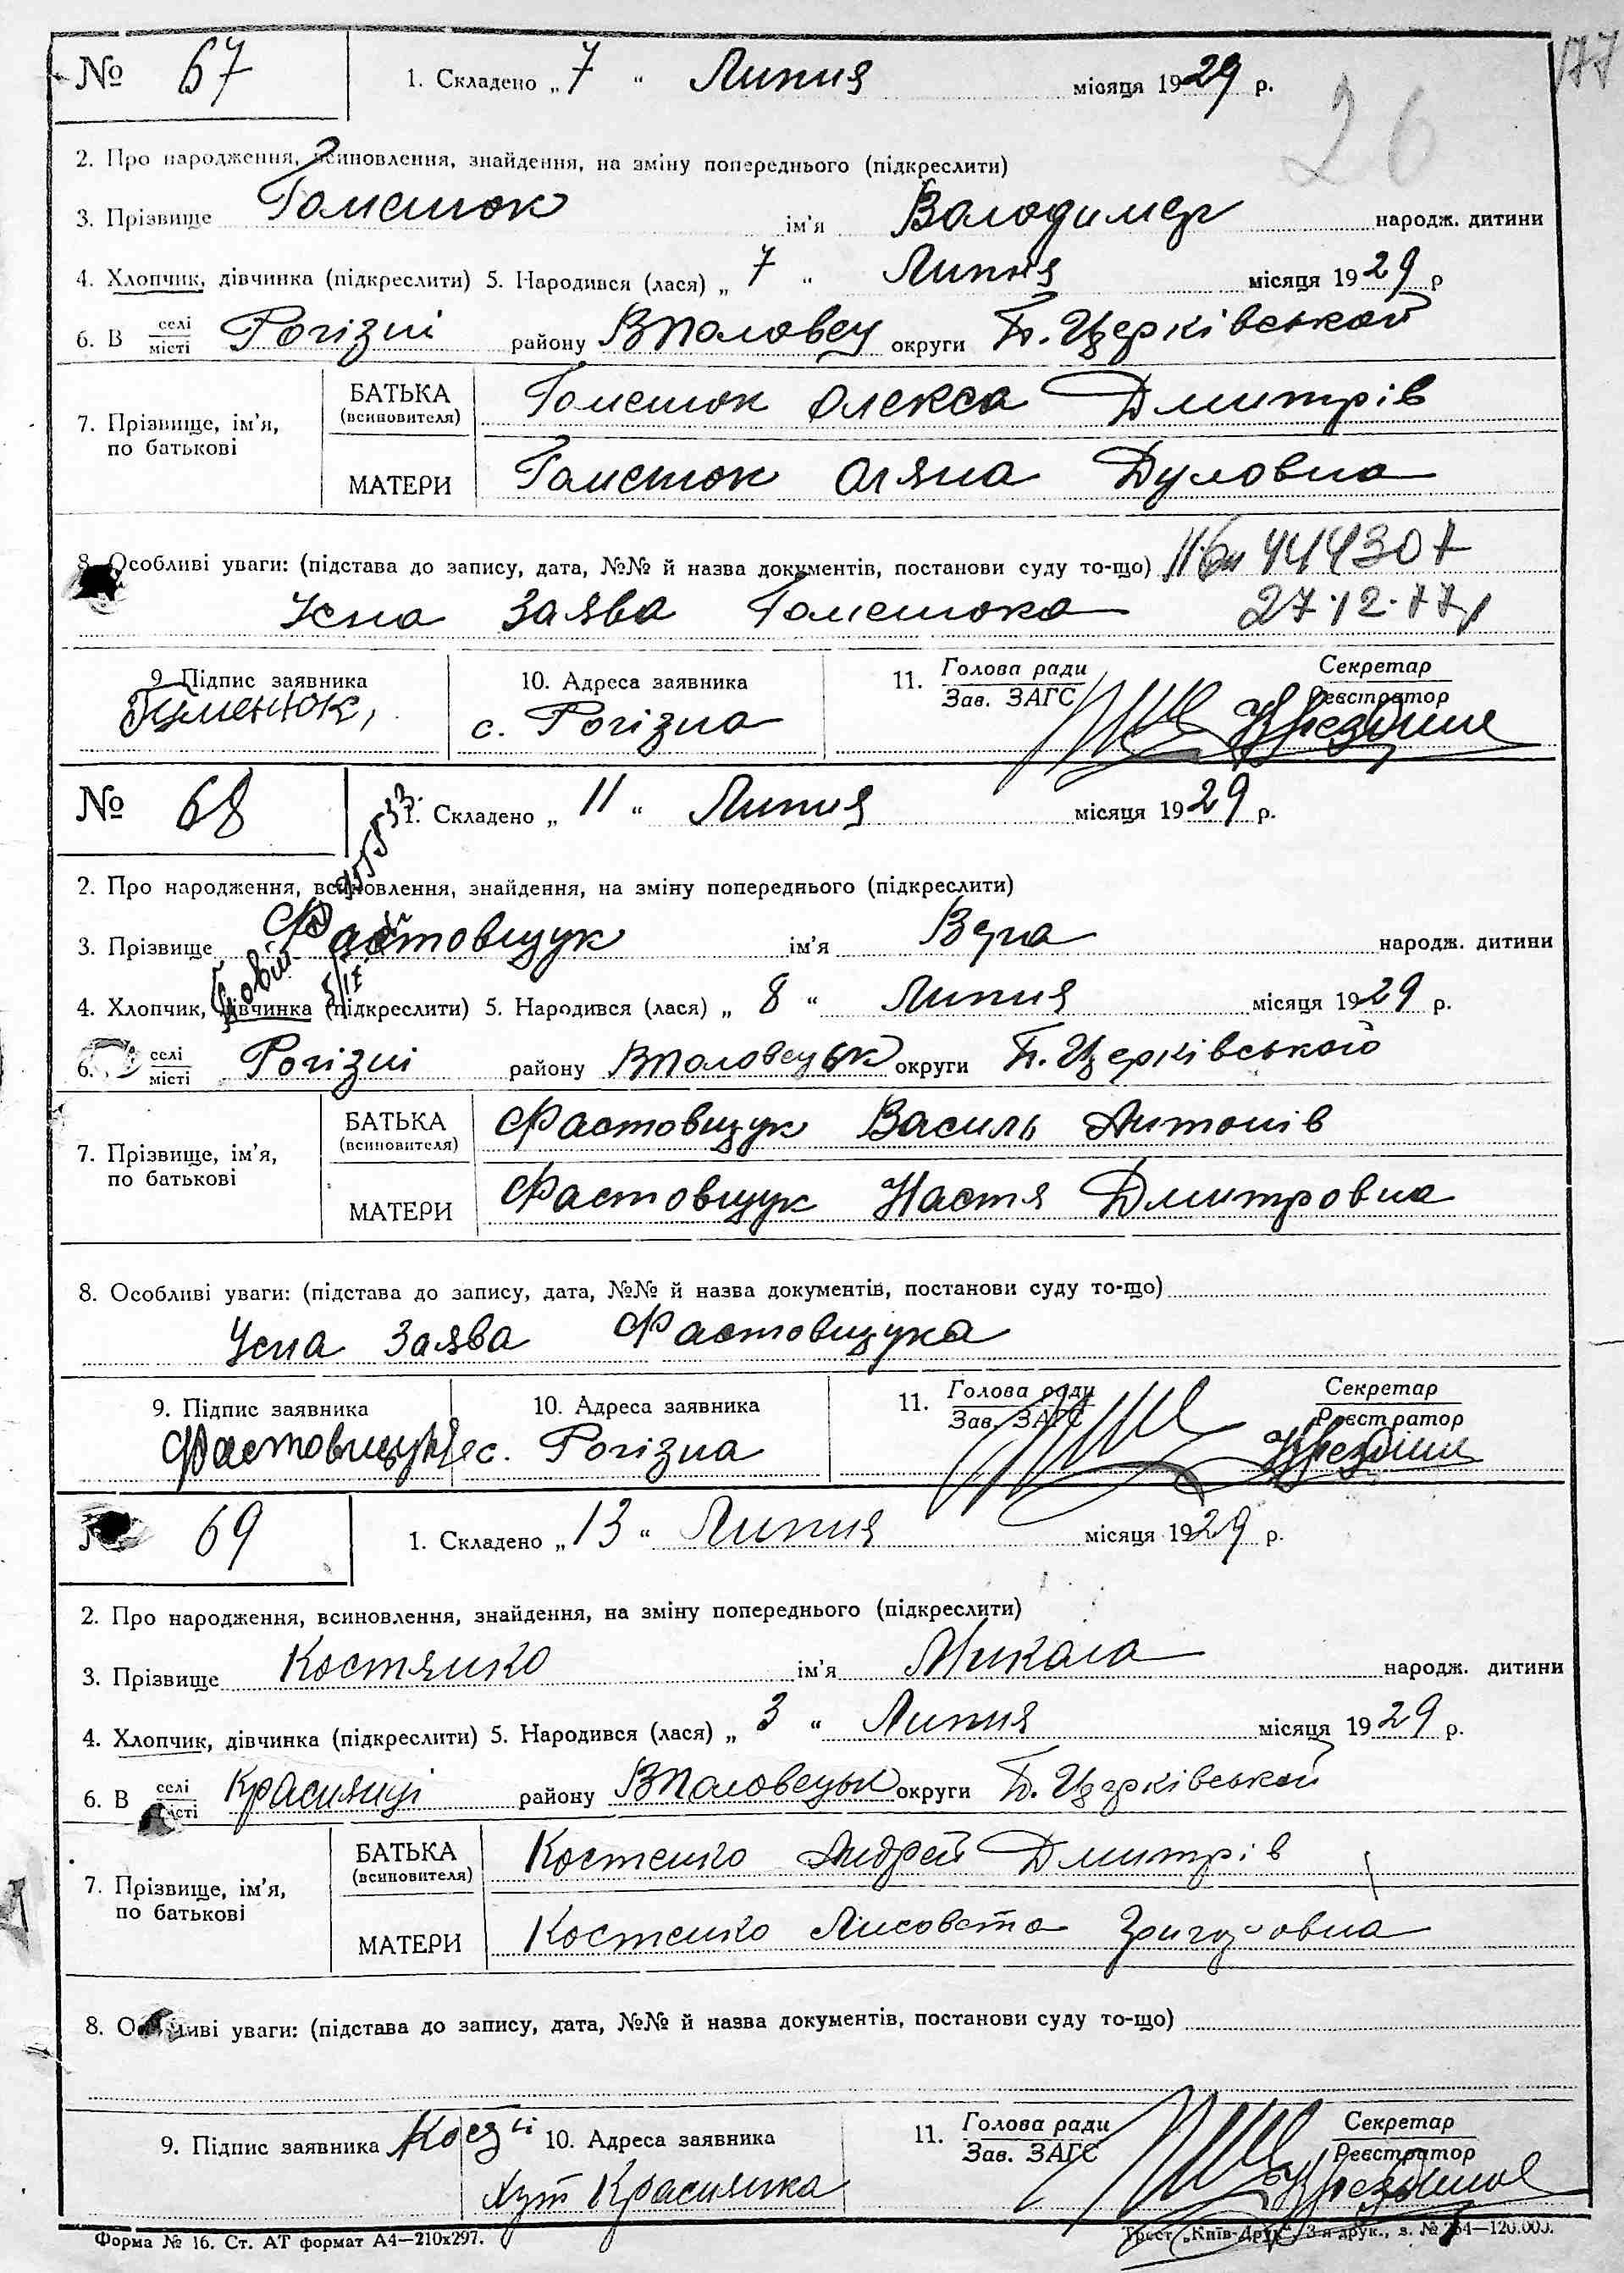 177
26
№ 67
1. Складено „ 7 “ Липня місяця 1929 р.
2. Про народження, всиновлення, знайдення, на зміну попереднього (підкреслити)
3. Прізвище Гоменюк ім’я Володимер народж. дитини
4. Хлопчик, дівчинка (підкреслити) 5. Народився (лася) „ 7 “ Липня місяця 1929 р
6. В селі місті Рогізні району ВПоловец округи Б. Церківської
7. Прізвище, ім’я, по батькові
БАТЬКА (всиновителя) Гоменюк Олекса Дмитрів
МАТЕРИ Гоменюк Оляна
8. Особливі уваги: (підстава до запису, дата, №№ й назва документів, постанови суду то-що) 444307
Усна Заява Гоменюка 27.12.77
9. Підпис заявника Гуменюк,
10. Адреса заявника с. Рогізна
11. Голова ради Зав. ЗАГС
Секретар Реєстратор
№ 68
1. Складено „ 11 “ Липня місяця 1929 р.
2. Про народження, всиновлення, знайдення, на зміну попереднього (підкреслити)
3. Прізвище Фастовщук ім’я Вера народж. дитини
4. Хлопчик, дівчинка (підкреслити) 5. Народився (лася) „ 8 “ Липня місяця 1929 р.
6. селі місті Рогізні району ВПоловецьк округи Б. Церківського
7. Прізвище, ім’я, по батькові
БАТЬКА (всиновителя) Фастовщук Василь Антонів
МАТЕРИ Фастовщук Настя Дмитровна
8. Особливі уваги: (підстава до запису, дата, №№ й назва документів, постанови суду то-що)
Усна Заява Фастовщука
9. Підпис заявника
10. Адреса заявника с. Рогізна
11. Голова ради Зав. ЗАГС
Секретар Реєстратор
69
1. Складено „ 13 “ Липня місяця 1929 р.
2. Про народження, всиновлення, знайдення, на зміну попереднього (підкреслити)
3. Прізвище Костянко ім’я Микола народж. дитини
4. Хлопчик, дівчинка (підкреслити) 5. Народився (лася) „ 3 “ Липня місяця 1929 р.
6. В селі місті Красянці району ВПоловецьк округи Б. Церківської
7. Прізвище, ім’я, по батькові
БАТЬКА (всиновителя) Костенко Андрей Дмитрів
МАТЕРИ Костенко Лисовета Григоровна
8. Особливі уваги: (підстава до запису, дата, №№ й назва документів, постанови суду то-що)
9. Підпис заявника
10. Адреса заявника хут Красянка
11. Голова ради Зав. ЗАГС
Секретар Реєстратор
Форма № 16. Ст. АТ формат А4—210x297.
Трест „Київ-Друк“, 3-я друк., з. № 264—120.000.